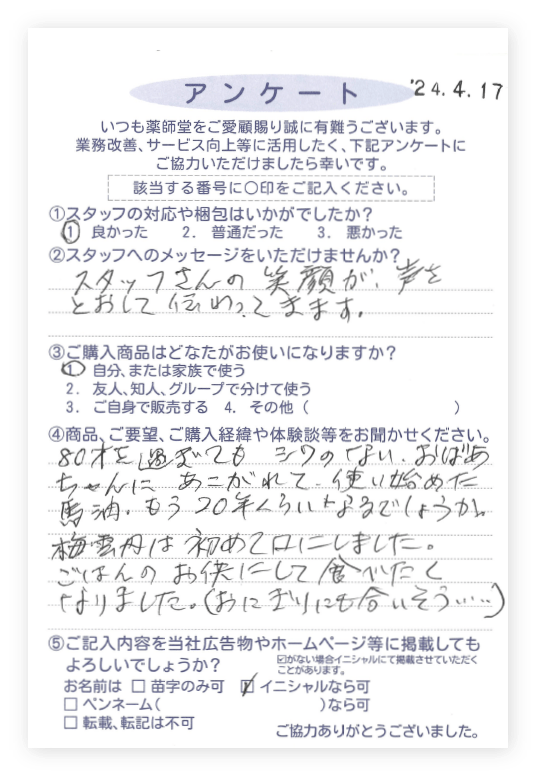 アンケート
'24.4.17
いつも薬師堂をご愛顧賜り誠に有難うございます。
業務改善、サービス向上等に活用したく、下記アンケートに
ご協力いただけましたら幸いです。
該当する番号に○印をご記入ください。
①スタッフの対応や梱包はいかがでしたか?
1 良かった 2. 普通だった 3. 悪かった
②スタッフへのメッセージをいただけませんか?
スタッフさんの笑顔が、声を
とおして伝わってきます。
③ご購入商品はどなたがお使いになりますか?
1 自分、または家族で使う
2. 友人、知人、グループで分けて使う
3. ご自身で販売する 4. その他( )
④商品、ご要望、ご購入経緯や体験談等をお聞かせください。
80才を過ぎてもシワのない、おばあ
ちゃんにあこがれて、使い始めた
馬油。もう20年くらいなるでしょうか。
梅雲丹は初めて口にしました。
ごはんのお供にして食べたく
なりました。(おにぎりにも合いそう……)
⑤ご記入内容を当社広告物やホームページ等に掲載しても
よろしいでしょうか?
☑がない場合イニシャルにて掲載させていただく
ことがあります。
お名前は □ 苗字のみ可 ☑ イニシャルなら可
□ ペンネーム( )なら可
□ 転載、転記は不可
ご協力ありがとうございました。